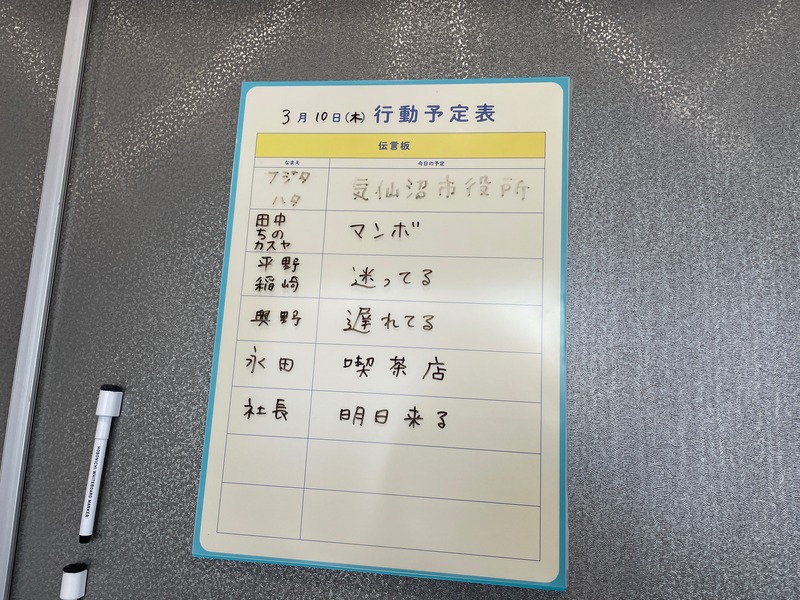 3月10日(木) 行動予定表
伝言板
なまえ 今日の予定
フジタ
ハタ
気仙沼市役所
田中
ちの
カスヤ
マンボ
平野
稲崎
迷ってる
奥野 遅れてる
永田 喫茶店
社長 明日来る
HOBONICHI WHITEBOARD MARKER